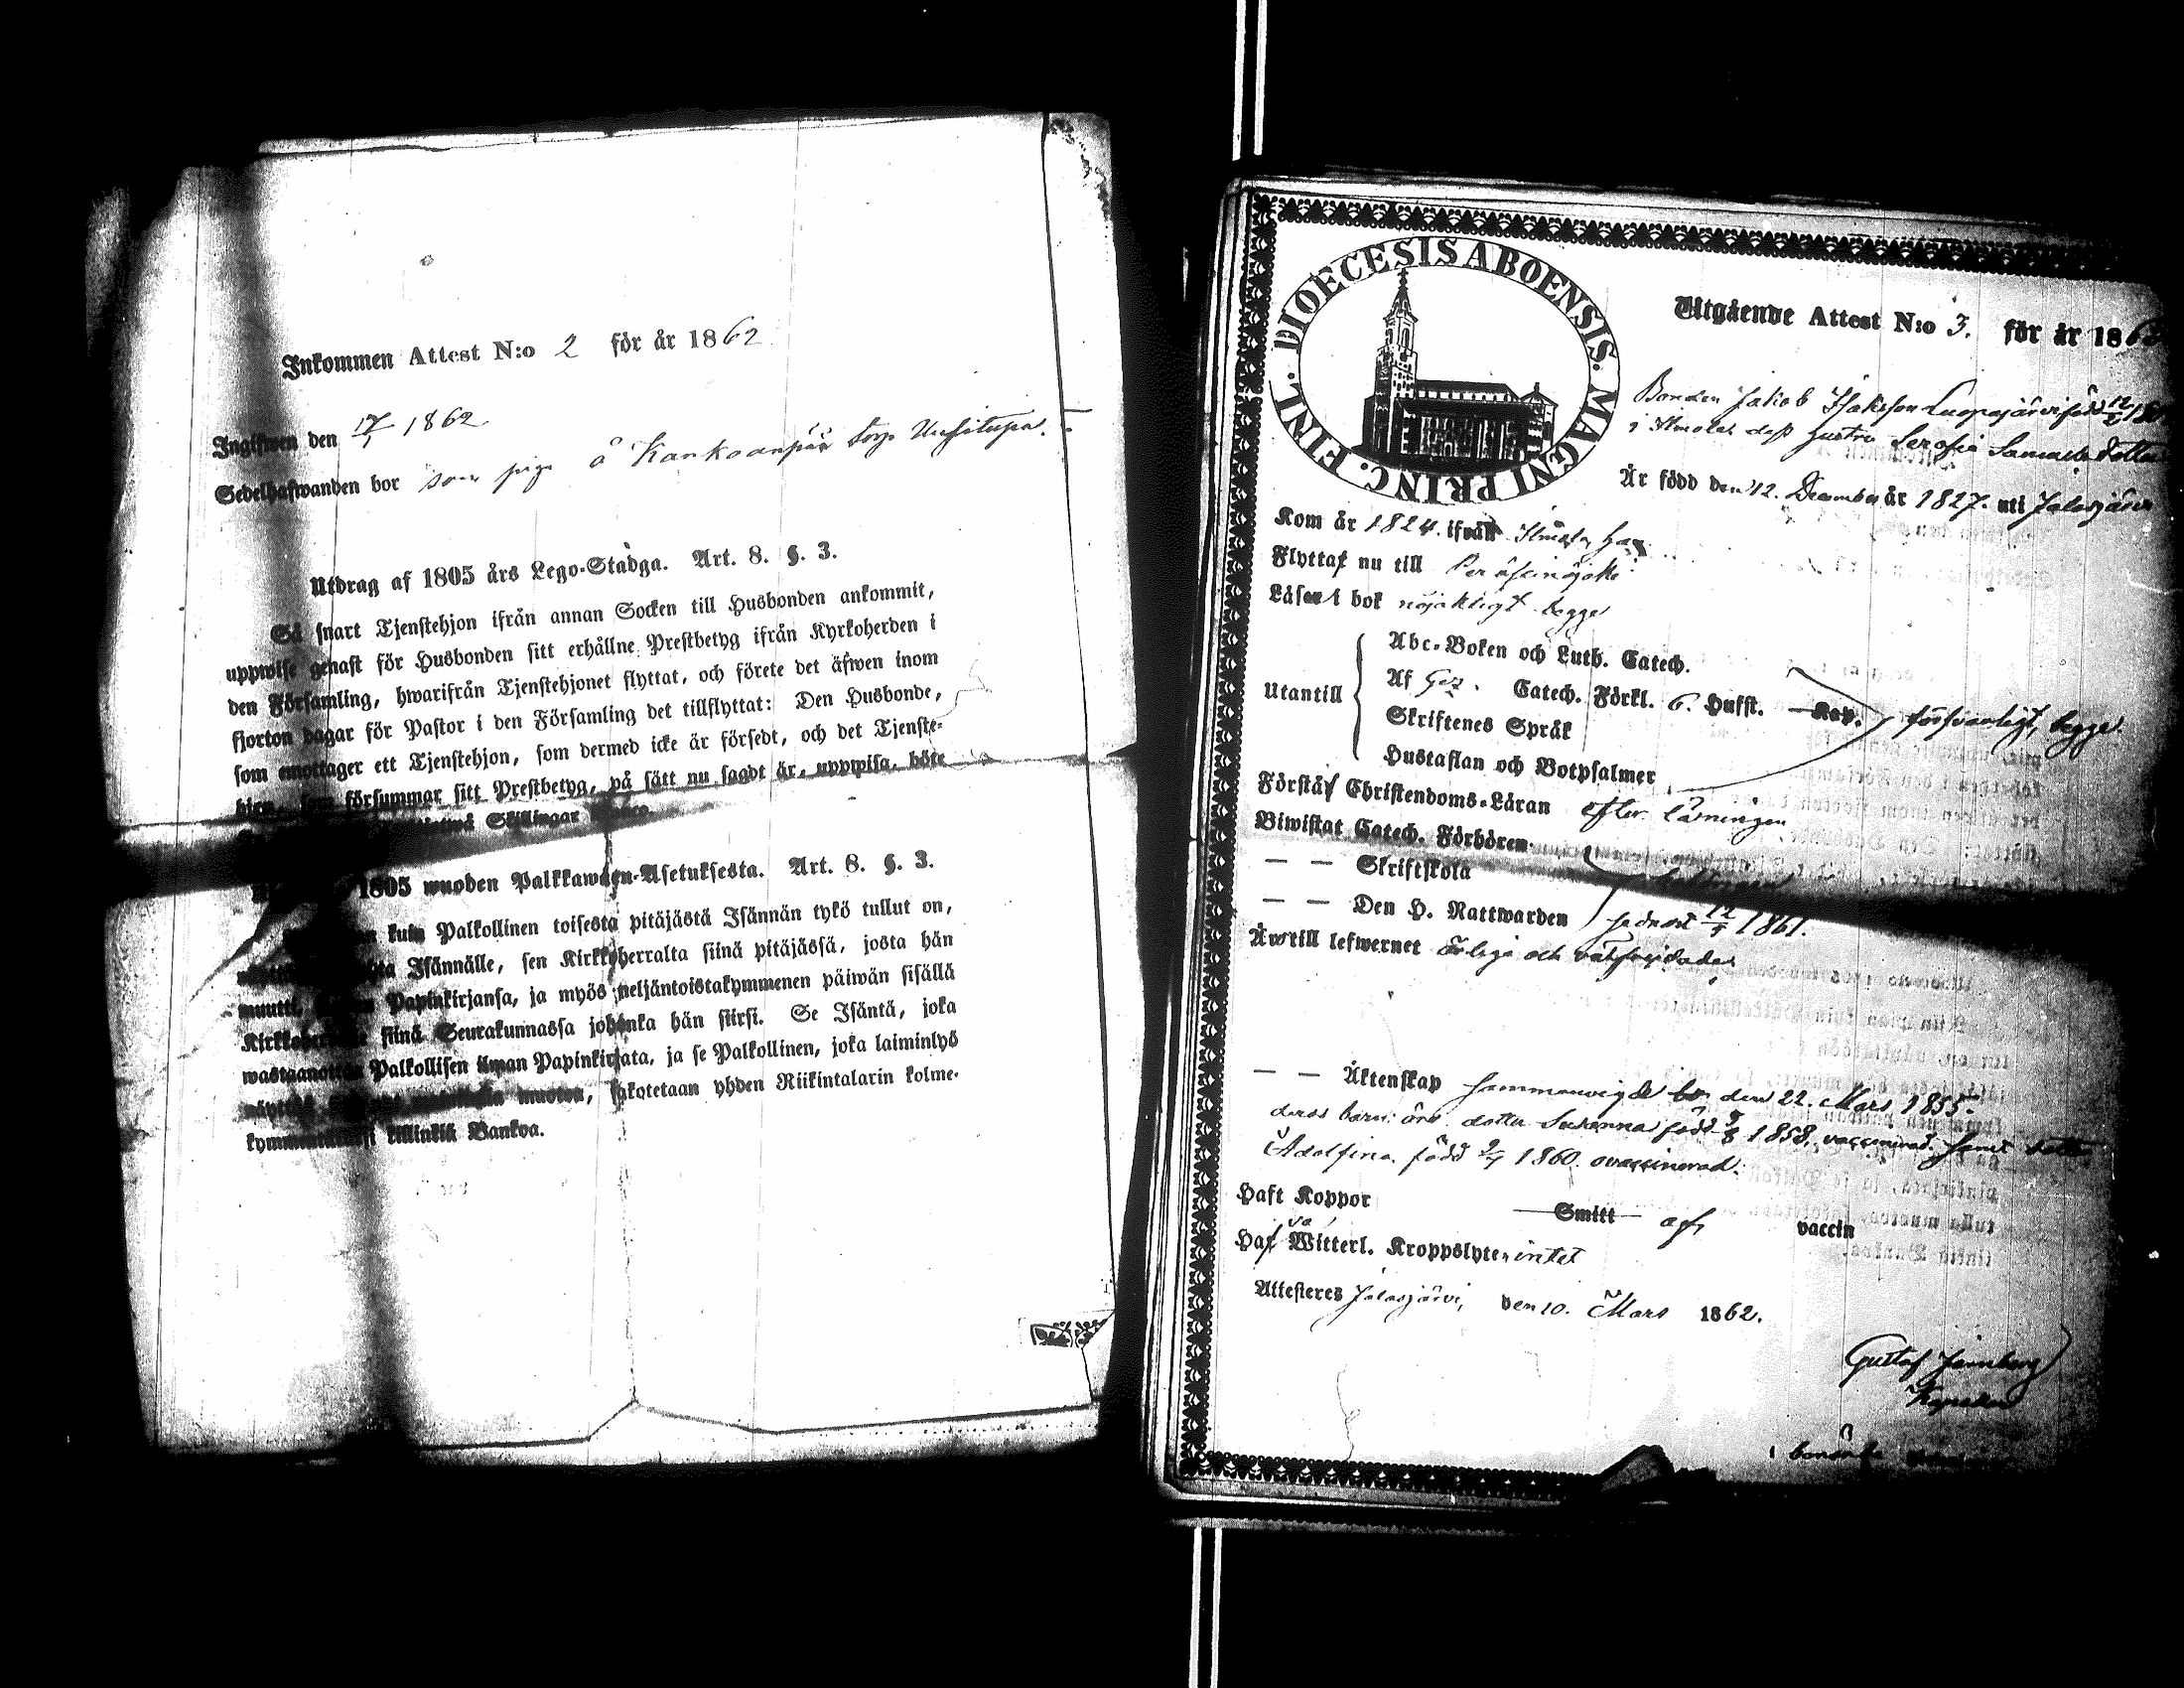 Inkommen Attest N:o 2 för år 1862
Ingifwen den 17/1 1862
Sedelhafwanden bor som piga å Kankaanpää torp Uusitupa.
Utdrag af 1805 års Lego-Stadga. Art. 8. §. 3.
Så snart Tjenstehjon ifrån annan Socken till Husbonden ankommit,
uppwise genast för Husbonden sitt erhållne Prestbetyg ifrån Kyrkoherden i
den Församling, hwarifrån Tjenstehjonet flyttat, och förete det äfwen inom
fjorton dagar för Pastor i den Församling det tillflyttat: Den Husbonde,
som emottager ett Tjenstehjon, som dermed icke är försedt, och det Tjenste-
hjon, som försummar sitt Prestbetyg, på sätt nu sagdt är, uppwisa, böte
Skillingar
1805 wuoden Palkkawäen-Asetuksesta. Art. 8. §. 3.
kuin Palkollinen toisesta pitäjästä Isännän tykö tullut on,
Isännälle, sen Kirkkoherralta siinä pitäjässä, josta hän
muutti, Papinkirjansa, ja myös neljäntoistakymmenen päiwän sisällä
Kirkkoherralle siinä Seurakunnassa johonka hän siirsi. Se Isäntä, joka
wastaanottaa Palkollisen ilman Papinkirjata, ja se Palkollinen, joka laiminlyö
muoton, sakotetaan yhden Riikintalarin kolme-
killinkiä Bankoa.
DIOECESIS ABOENSIS. MAGNI PRINC. FINL.
Utgående Attest N:o 3. för år 1862
Bonden Jakob Isaksson Luopajärvi född 12/2
i Ilmola dess hustru Serafia Samuelsdotter
Är född den 12. December år 1827. uti Jalasjärvi
Kom år 1824. ifrån Ilmola han
Flyttaf nu till Peräseinäjoki
Läser i bok nöjaktigt begge
Utantill
Abc-Boken och Luth. Catech.
Af Gez. Catech. Förkl. 6. Hufst. Kap. försvarligt, begge
Skriftenes Språk
Hustaflan och Botpsalmer
Förstår Christendoms-Läran efter läsningen
Biwistat Catech. Förhören
— — Skriftskola
— — Den H. Nattwarden sednast 1861.
Är till lefwernet ärliga och välfrejdade
— — Äktenskap sammanvigde den 22. Mars 1855.
deras barn: äro dotter Susanna född 1858, vaccinerad. samt dotter
Adolfina född 1860. ovaccinerad.
Haft Koppor Smitt af vaccin
Haf va Witterl. Kroppslyten intet
Attesteras Jalasjärvi, den 10. Mars 1862.
Gustaf
Kapellan